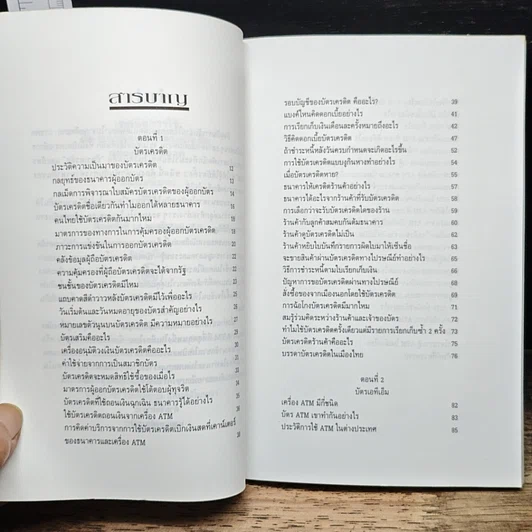 สารบาญ
ตอนที่ 1
บัตรเครดิต
ประวัติความเป็นมาของบัตรเครดิต 12
กลยุทธ์ของธนาคารผู้ออกบัตร
กลเม็ดการพิจารณาใบสมัครบัตรเครดิตของผู้ออกบัตร
บัตรเครดิตชื่อเดียวกันทำไมออกได้หลายธนาคาร
คนไทยใช้บัตรเครดิตกันมากไหม
มาตรการของทางการในการคุ้มครองผู้ออกบัตรเครดิต
ภาวะการแข่งขันในการออกบัตรเครดิต
คลังข้อมูลผู้ถือบัตรเครดิต
ความคุ้มครองที่ผู้ถือบัตรเครดิตจะได้จากรัฐ
ชนชั้นของบัตรเครดิตมีไหม
แถบคาดสีดำวาวหลังบัตรเครดิตมีไว้เพื่ออะไร
วันเริ่มต้นและวันหมดอายุของบัตรสำคัญอย่างไร
หมายเลขตัวนูนบนบัตรเครดิต มีความหมายอย่างไร
บัตรเสริมคืออะไร
เครื่องอนุมัติวงเงินบัตรเครดิตคืออะไร
ค่าใช้จ่ายจากการเป็นสมาชิกบัตร
บัตรเครดิตจะหมดสิทธิใช้ซื้อของเมื่อไร
มาตรการผู้ออกบัตรเครดิตใช้ได้ตอบผู้ทุจริต
บัตรเครดิตที่ใช้ถอนเงินฉุกเฉิน ธนาคารรู้ได้อย่างไร
ใช้บัตรเครดิตถอนเงินจากเครื่อง ATM
การคิดค่าบริการจากการใช้บัตรเครดิตเบิกเงินสดที่เคาน์เตอร์
ของธนาคารและเครื่อง ATM
รอบบัญชีของบัตรเครดิต คืออะไร? 39
แบงค์ไหนคิดดอกเบี้ยอย่างไร 41
การเรียกเก็บเงินเดือนละครั้งหมายถึงอะไร 42
วิธีคิดดอกเบี้ยบัตรเครดิต 47
ถ้าชำระหนี้หลังวันครบกำหนดจะเกิดอะไรขึ้น 52
การใช้บัตรเครดิตแบบงูกินหางทำอย่างไร 54
เมื่อบัตรเครดิตหาย? 56
ธนาคารให้เครดิตร้านค้าอย่างไร 57
ธนาคารได้อะไรจากร้านค้าที่รับบัตรเครดิต 58
การเลือกว่าจะรับบัตรเครดิตใดของร้าน 59
ร้านค้ากับลูกค้าสมคบกันต้มธนาคาร 60
ร้านค้าดูบัตรเครดิตไม่เป็น 61
ร้านค้าหยิบใบบันทึกรายการผิดใบมาให้เซ็นชื่อ 62
จะขายสินค้าผ่านบัตรเครดิตทางไปรษณีย์ทำอย่างไร? 63
วิธีการชำระหนี้ตามใบเรียกเก็บเงิน 66
ปัญหาการขอบัตรเครดิตผ่านทางไปรษณีย์ 68
สั่งซื้อของจากเมืองนอกโดยใช้บัตรเครดิต
การฉ้อโกงบัตรเครดิตมีมากไหม
สมรู้ร่วมคิดระหว่างร้านค้าและเจ้าของบัตร
ทำไมใช้บัตรเครดิตครั้งเดียวแต่มีรายการเรียกเก็บซ้ำ 2 ครั้ง
บัตรเครดิตร้านค้าคืออะไร 75
บรรดาบัตรเครดิตในเมืองไทย 76
ตอนที่ 2
บัตรเอทีเอ็ม
เครื่อง ATM มีกี่ชนิด 82
บัตร ATM เขาทำกันอย่างไร 83
ประวัติการใช้ ATM ในต่างประเทศ 85